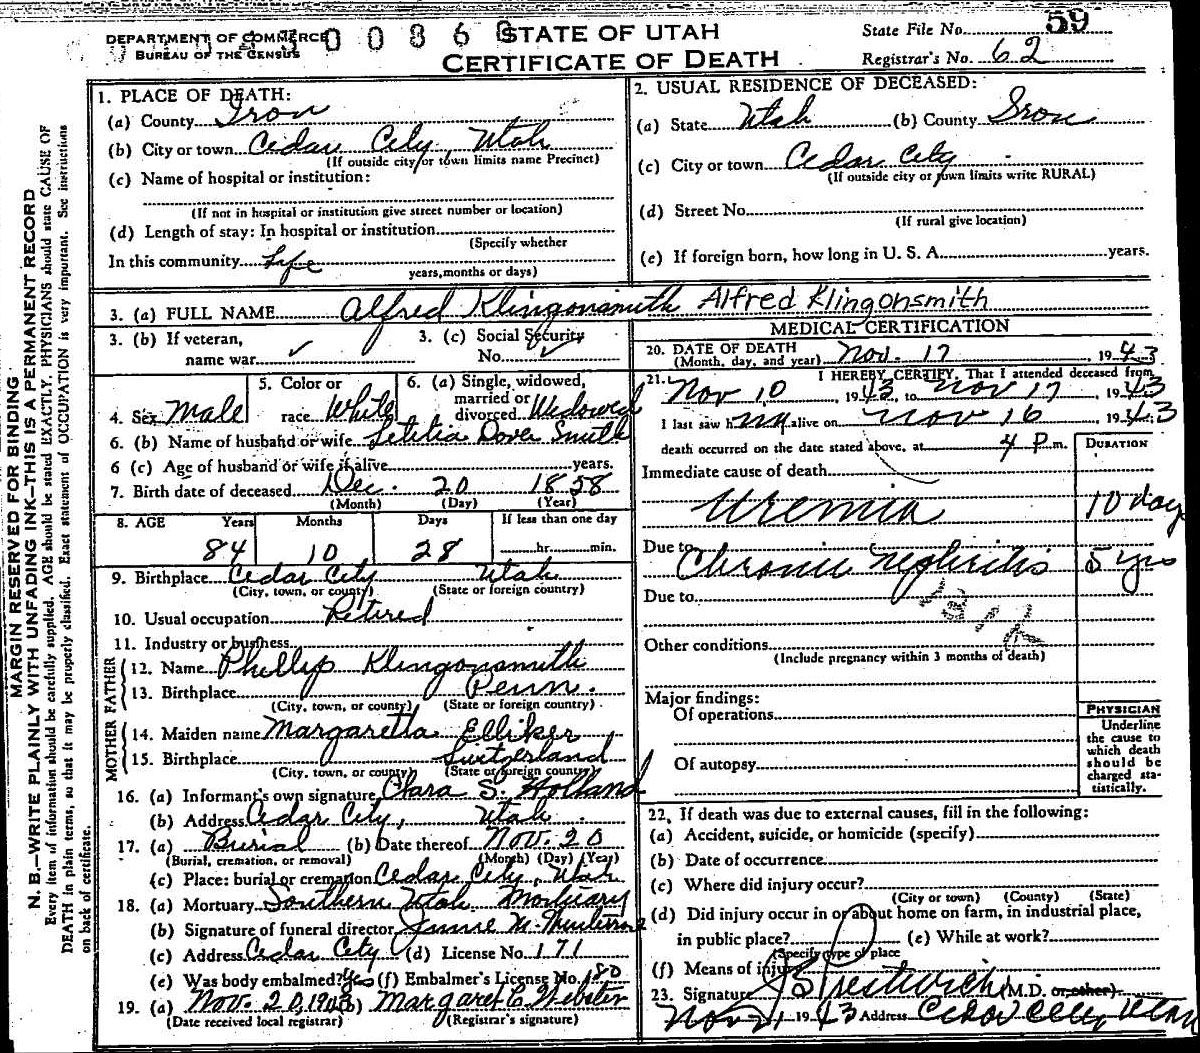 59
DEPARTMENT OF COMMERCE 0 0 8 6 STATE OF UTAH State File No.
BUREAU OF THE CENSUS CERTIFICATE OF DEATH Registrar's No. 62
MARGIN RESERVED FOR BINDING
N. B.—WRITE PLAINLY WITH UNFADING INK—THIS IS A PERMANENT RECORD
Every item of information should be carefully supplied. AGE should be stated EXACTLY. PHYSICIANS should state CAUSE OF
DEATH in plain terms, so that it may be properly classified. Exact statement of OCCUPATION is very important. See instructions
on back of certificate.
1. PLACE OF DEATH:
(a) County Iron
(b) City or town Cedar City, Utah
(If outside city or town limits name Precinct)
(c) Name of hospital or institution:
(If not in hospital or institution give street number or location)
(d) Length of stay: In hospital or institution
(Specify whether
In this community Life
years, months or days)
2. USUAL RESIDENCE OF DECEASED:
(a) State Utah (b) County Iron
(c) City or town Cedar City
(If outside city or town limits write RURAL)
(d) Street No.
(If rural give location)
(e) If foreign born, how long in U. S. A. years.
3. (a) FULL NAME Alfred Klingonsmith Alfred Klingonsmith
3. (b) If veteran, 3. (c) Social Security
name war ✓ No. ✓
5. Color or 6. (a) Single, widowed,
married or
4. Sex Male race White divorced Widowed
6. (b) Name of husband or wife Letitia Dover Smith
6 (c) Age of husband or wife if alive years.
7. Birth date of deceased Dec. 20 1858
(Month) (Day) (Year)
8. AGE Years Months Days If less than one day
84 10 28 hr. min.
9. Birthplace Cedar City Utah
(City, town, or county) (State or foreign country)
10. Usual occupation Retired
11. Industry or business
FATHER
12. Name Phillip Klingonsmith
13. Birthplace Penn.
(City, town, or county) (State or foreign country)
MOTHER
14. Maiden name Margaretta Elliker
15. Birthplace Switzerland
(City, town, or county) (State or foreign country)
16. (a) Informant's own signature Clara S. Holland
(b) Address Cedar City, Utah
17. (a) Burial (b) Date thereof Nov. 20
(Burial, cremation, or removal) (Month) (Day) (Year)
(c) Place: burial or cremation Cedar City, Utah
18. (a) Mortuary Southern Utah Mortuary
(b) Signature of funeral director
(c) Address Cedar City (d) License No. 171
(e) Was body embalmed? Yes (f) Embalmer's License No. 180
19. (a) Nov. 20, 1943 (b) Margaret C. Webster
(Date received local registrar) (Registrar's signature)
MEDICAL CERTIFICATION
20. DATE OF DEATH
(Month, day, and year) Nov. 17, 1943
21. I HEREBY CERTIFY, That I attended deceased from
Nov 10 1943, to Nov 17, 1943
I last saw him alive on Nov 16 1943
death occurred on the date stated above, at 4 P.m. DURATION
Immediate cause of death
Uremia 10 days
Due to Chronic Nephritis 5 yrs
Due to
Other conditions
(Include pregnancy within 3 months of death)
Major findings:
Of operations
Of autopsy
PHYSICIAN
Underline
the cause to
which death
should be
charged sta-
tistically.
22. If death was due to external causes, fill in the following:
(a) Accident, suicide, or homicide (specify)
(b) Date of occurrence
(c) Where did injury occur?
(City or town) (County) (State)
(d) Did injury occur in or about home on farm, in industrial place,
in public place? (e) While at work?
(Specify type of place
(f) Means of injury
23. Signature Prestwich (M.D. or other)
Nov 21 1943 Address Cedar City, Utah